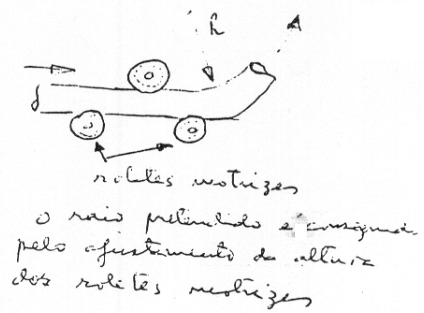 roletes motrizes
o raio pretendido é
pelo ajustamento da altura
dos roletes motrizes